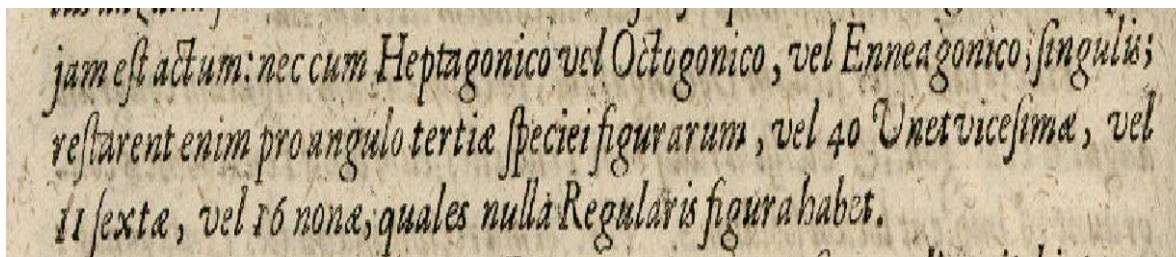 jam eſt actum: nec cum Heptagonico vel Octogonico, vel Enneagonico, ſingulis;
reſtarent enim pro angulo tertiæ ſpeciei figurarum, vel 40 Unetviceſimæ, vel
11 ſextæ, vel 16 nonæ, quales nulla Regularis figura habet.